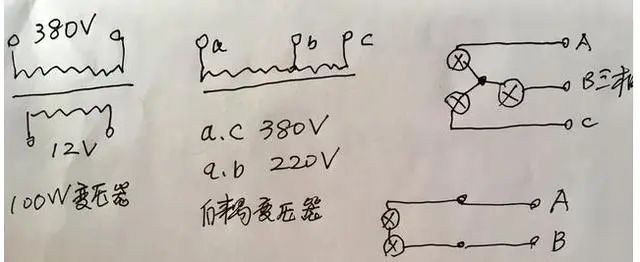 380V
12V
100W变压器
a
b
c
a.c 380V
a.b 220V
自耦变压器
A
B三相
C
A
B